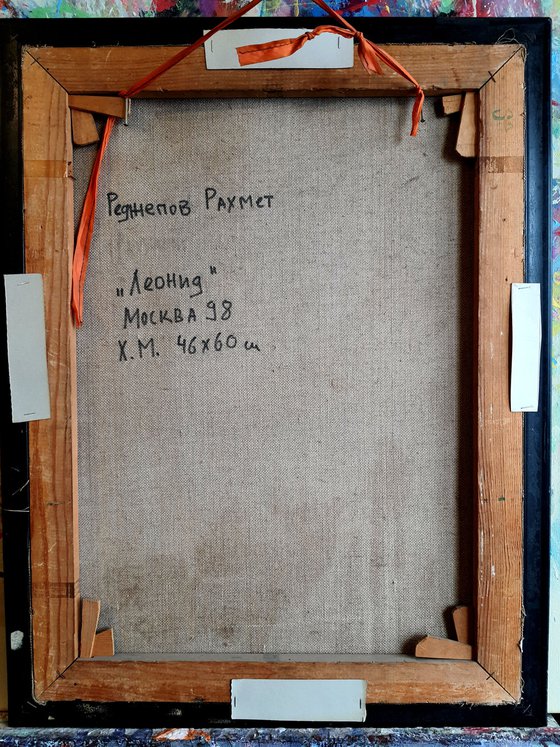 Реджепов Рахмет
„Леонид"
Москва 98
Х.М. 46х60 см